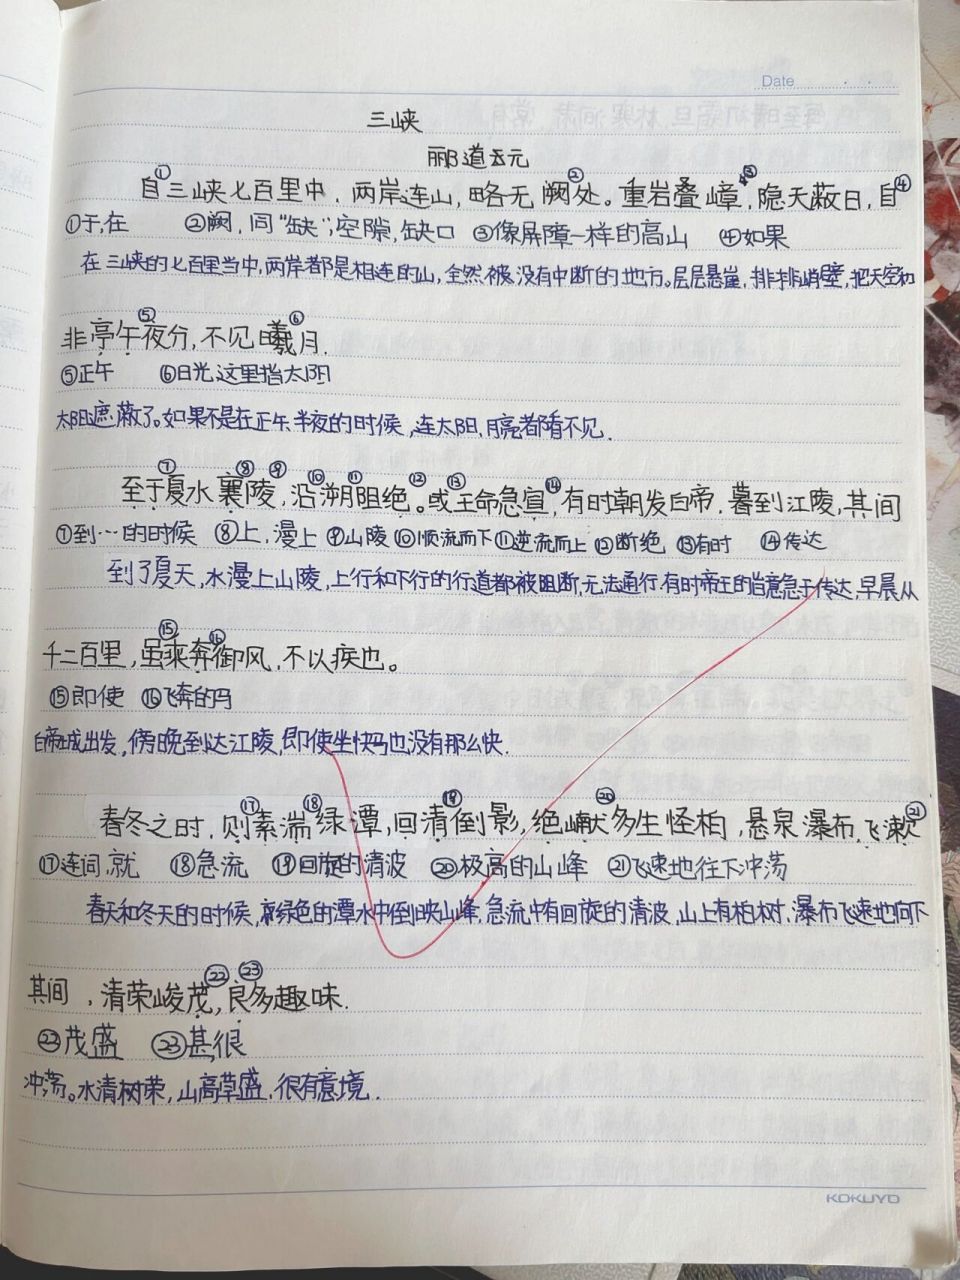 Date
三峡
郦道元
自①三峡七百里中，两岸连山，略无阙②处。重岩叠嶂③，隐天蔽日，自④
①于,在 ②阙，同“缺”；空隙,缺口 ③像屏障一样的高山 ④如果
在三峡的七百里当中,两岸都是相连的山,全然被没有中断的地方。层层悬崖,排排峭壁,把天空和
非亭午⑤夜分,不见曦⑥月.
⑤正午 ⑥日光,这里指太阳
太阳遮蔽了。如果不是在正午半夜的时候,连太阳,月亮都看不见.
至于⑦夏水襄⑧陵⑨,沿⑩溯⑪阻绝⑫。或⑬王命急宣⑭,有时朝发白帝,暮到江陵,其间
⑦到…的时候 ⑧上,漫上 ⑨山陵 ⑩顺流而下 ⑪逆流而上 ⑫断绝 ⑬有时 ⑭传达
到了夏天,水漫上山陵,上行和下行的行道都被阻断,无法通行.有时帝王的旨意急于传达,早晨从
千二百里,虽⑮乘奔⑯御风,不以疾也。
⑮即使 ⑯飞奔的马
白帝城出发,傍晚到达江陵,即使坐快马也没有那么快.
春冬之时,则⑰素湍⑱绿潭,回清⑲倒影,绝巘⑳多生怪柏,悬泉瀑布,飞漱㉑
⑰连词,就 ⑱急流 ⑲回旋的清波 ⑳极高的山峰 ㉑飞速地往下冲荡
春天和冬天的时候,绿色的潭水中倒映山峰,急流中有回旋的清波,山上有柏树,瀑布飞速地向下
其间,清荣峻茂㉒,良㉓多趣味.
㉒茂盛 ㉓甚,很
冲荡。水清树荣,山高草盛,很有意境.
KOKUYO